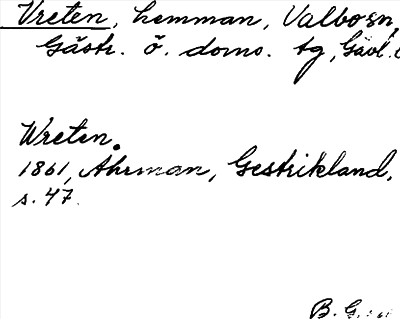 Vreten, hemman, Valbo sn,
Gästr. ö. doms. tg, Gävl.
Wreten.
1861, Ahrman, Gestrikland,
s. 47.
B. G.